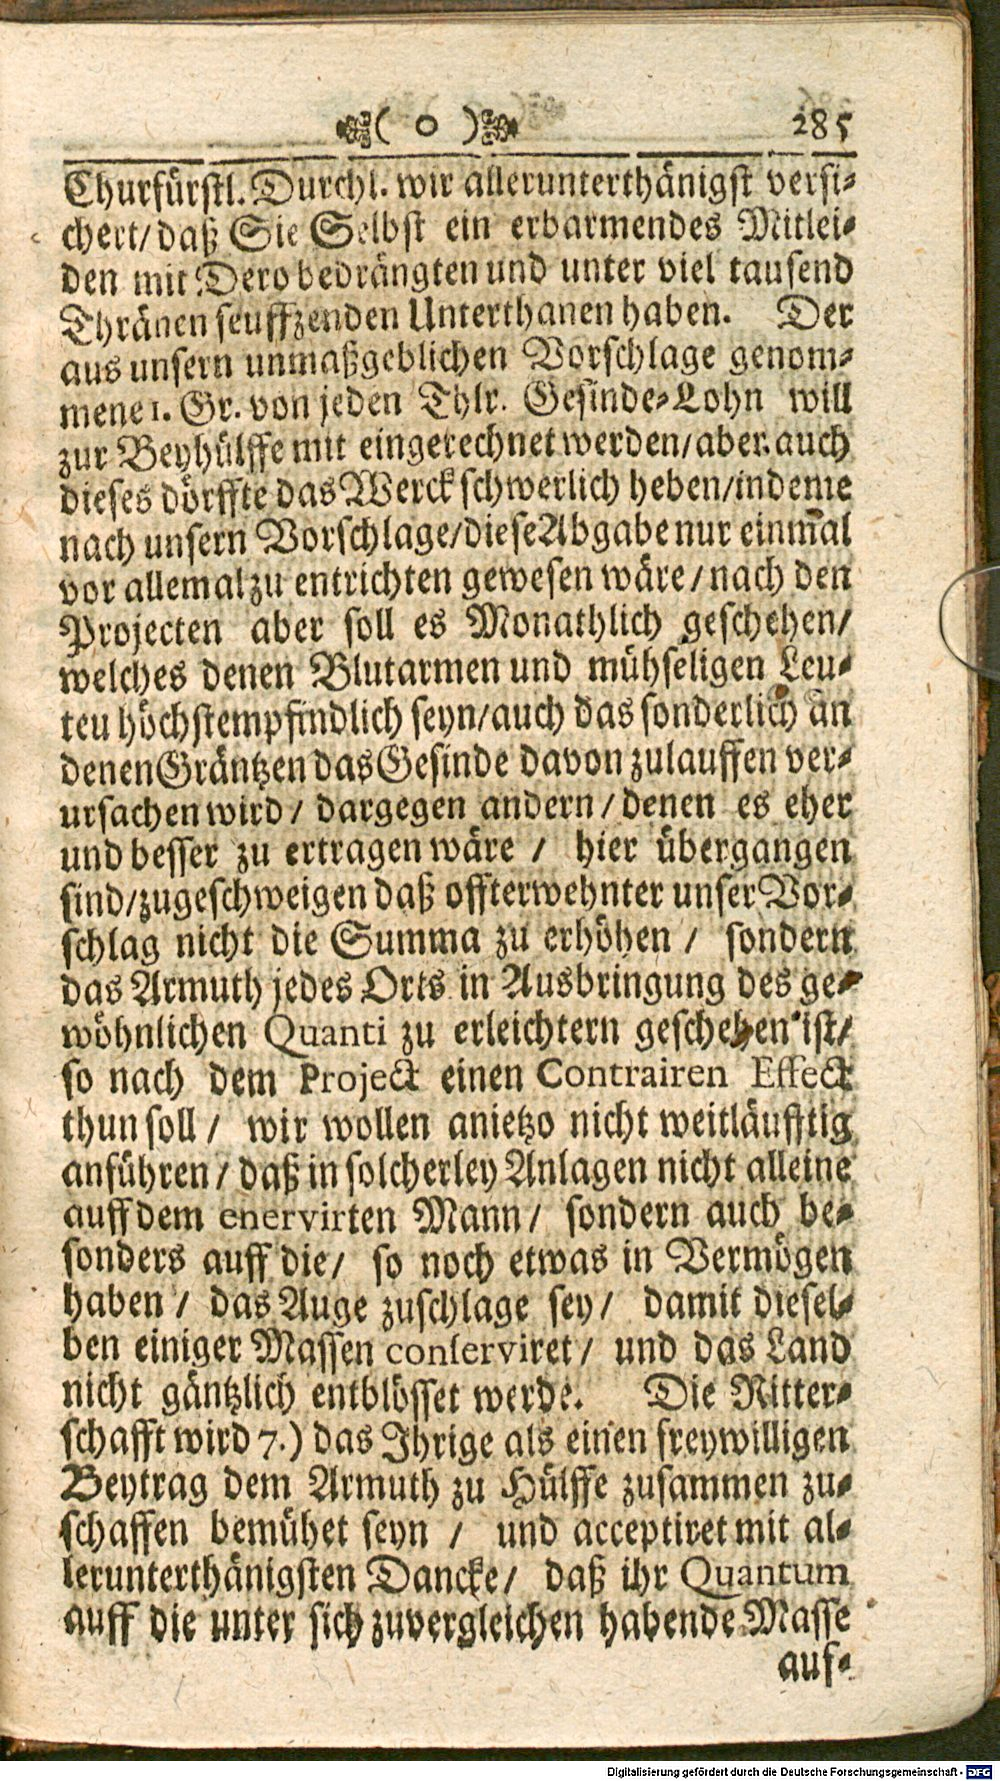 ( o ) 285
Churfürstl. Durchl. wir allerunterthänigst versi-
chert/ daß Sie Selbst ein erbarmendes Mitlei-
den mit Dero bedrängten und unter viel tausend
Thränen seuffzenden Unterthanen haben. Der
aus unsern unmaßgeblichen Vorschlage genom-
mene 1. Gr. von jeden Thlr. Gesinde-Lohn will
zur Beyhülffe mit eingerechnet werden/ aber auch
dieses dörffte das Werck schwerlich heben/ indeme
nach unsern Vorschlage/ diese Abgabe nur einm̃al
vor allemal zu entrichten gewesen wäre/ nach den
Projecten aber soll es Monathlich geschehen/
welches denen Blutarmen und mühseligen Leu-
teu höchstempfindlich seyn/ auch das sonderlich an
denen Gräntzen das Gesinde davon zulauffen ver-
ursachen wird/ dargegen andern/ denen es eher
und besser zu ertragen wäre / hier übergangen
sind/ zugeschweigen daß offterwehnter unser Vor-
schlag nicht die Summa zu erhöhen / sondern
das Armuth jedes Orts in Ausbringung des ge-
wöhnlichen Quanti zu erleichtern geschehen ist/
so nach dem Project einen Contrairen Effect
thun soll / wir wollen anietzo nicht weitläufftig
anführen/ daß in solcherley Anlagen nicht alleine
auff dem enervirten Mann/ sondern auch be-
sonders auff die/ so noch etwas in Vermögen
haben / das Auge zuschlage sey/ damit diesel-
ben einiger Massen conserviret/ und das Land
nicht gäntzlich entblösset werde. Die Ritter-
schafft wird 7.) das Ihrige als einen freywilligen
Beytrag dem Armuth zu Hülffe zusammen zu-
schaffen bemühet seyn / und acceptiret mit al-
lerunterthänigsten Dancke/ daß ihr Quantum
auff die unter sich zuvergleichen habende Masse
auf-
Digitalisierung gefördert durch die Deutsche Forschungsgemeinschaft - DFG